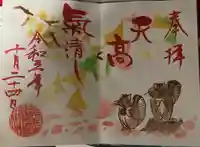 奉拝
天高
氣清し
令和三年
十月二十四日